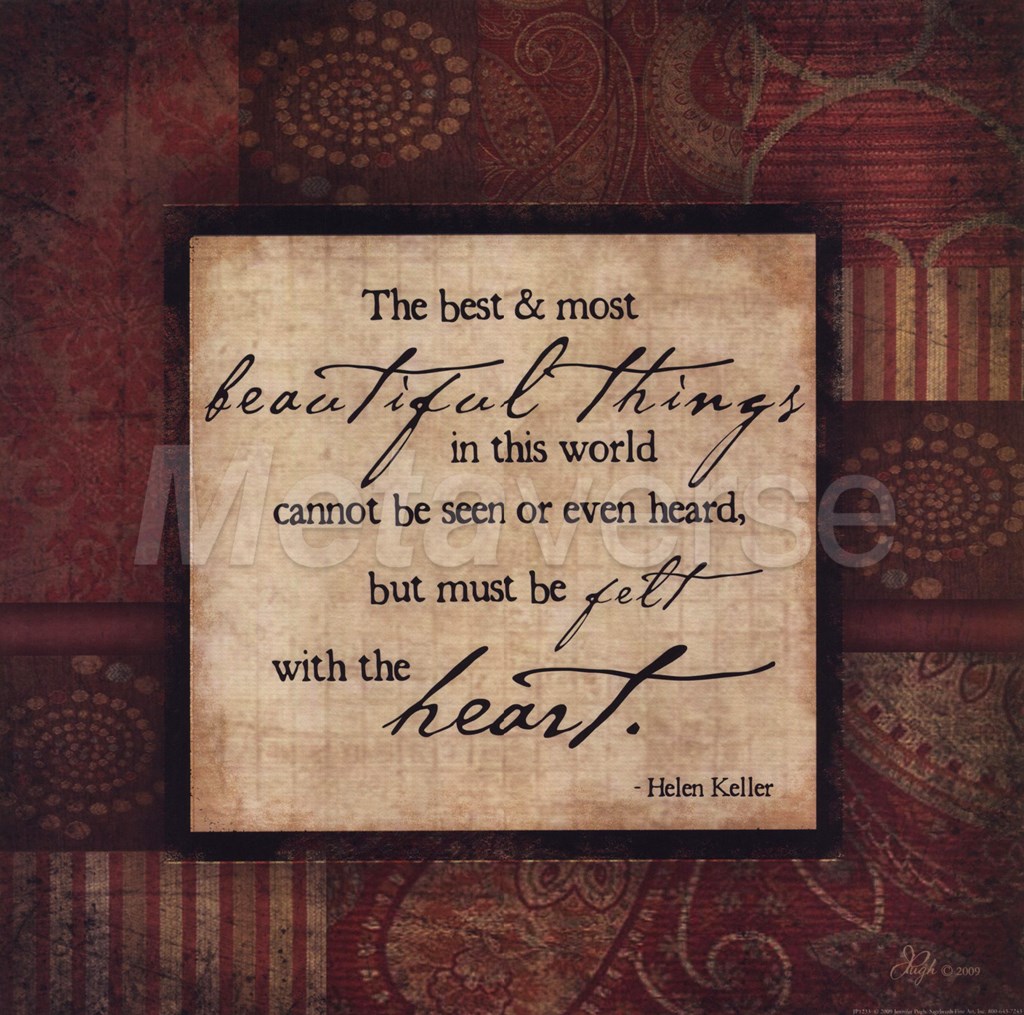 The best & most
beautiful things
in this world
cannot be seen or even heard,
but must be felt
with the heart.
- Helen Keller
Metaverse
JPugh © 2009